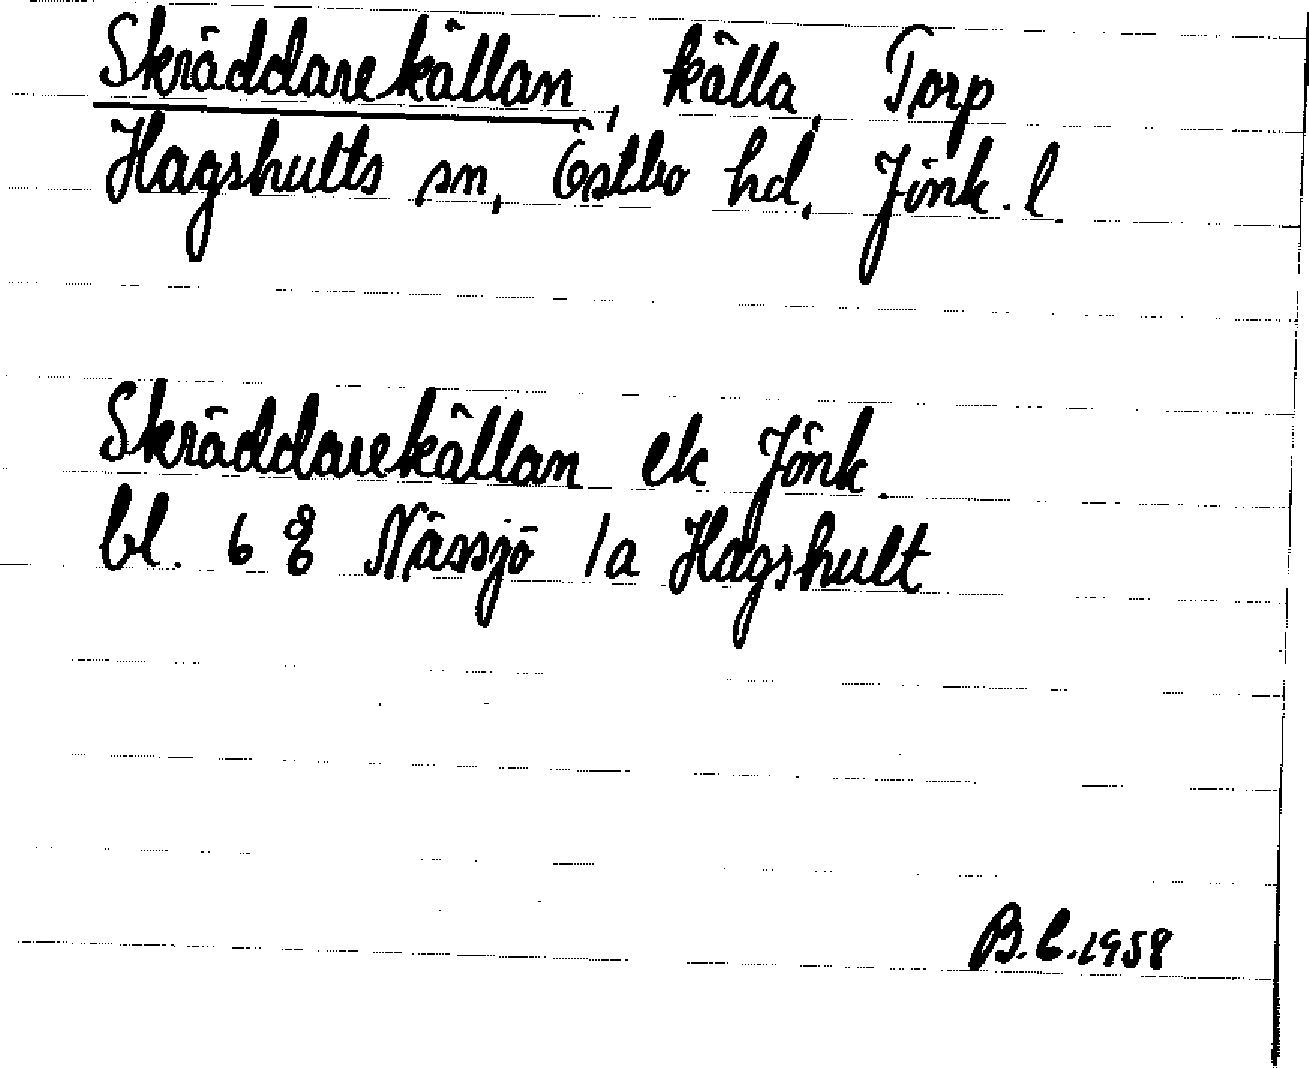 Skräddarekällan, källa, Torp
Hagshults sn, Östbo hd, Jönk. l.
Skräddarekällan ek Jönk.
bl. 6 8 Nässjö 1a Hagshult
B.C. 1958